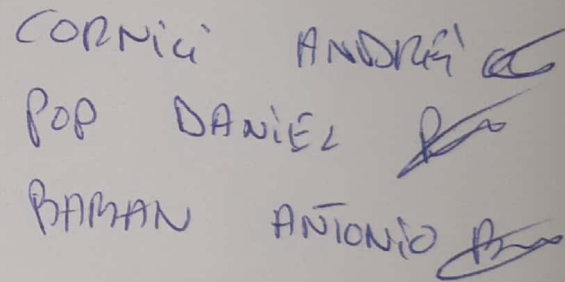 CORNICI ANDREI
POP DANIEL
BABAN ANTONIO